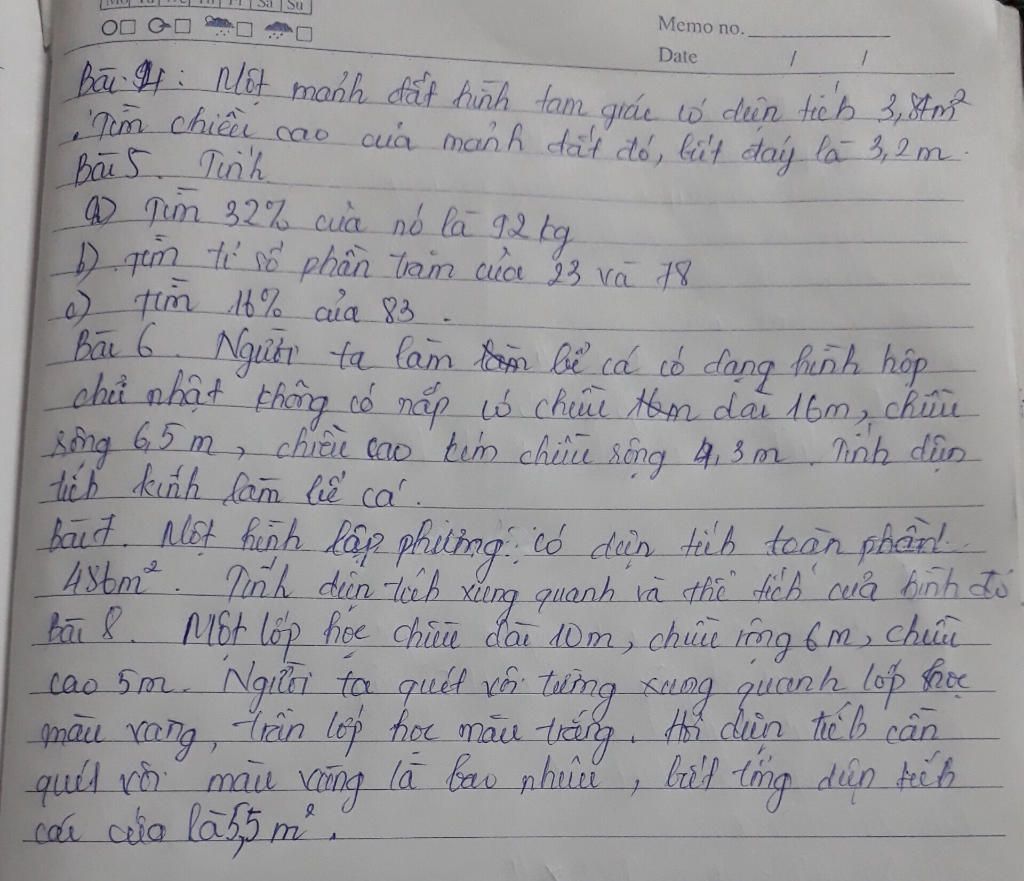 Sa Su
Memo no.
Date / /
Bài 4: Một mảnh đất hình tam giác có diện tích 3,84m²
. Tìm chiều cao của mảnh đất đó, biết đáy là 3,2m.
Bài 5. Tính
a) Tìm 32% của nó là 92kg
b) tìm tỉ số phần trăm của 23 và 78
c) tìm 16% của 83.
Bài 6. Người ta làm bể cá có dạng hình hộp
chữ nhật không có nắp có chiều dài 16m, chiều
rộng 6,5m, chiều cao kém chiều rộng 4,3m. Tính diện
tích kính làm bể cá.
Bài 7. Một hình lập phương: có diện tích toàn phần
486m². Tính diện tích xung quanh và thể tích của hình đó
Bài 8. Một lớp học chiều dài 10m, chiều rộng 6m, chiều
cao 5m. Người ta quét vôi tường xung quanh lớp học
màu vàng, trần lớp học màu trắng. Hỏi diện tích cần
quét vôi màu vàng là bao nhiêu, biết tổng diện tích
các cửa là 5,5m².